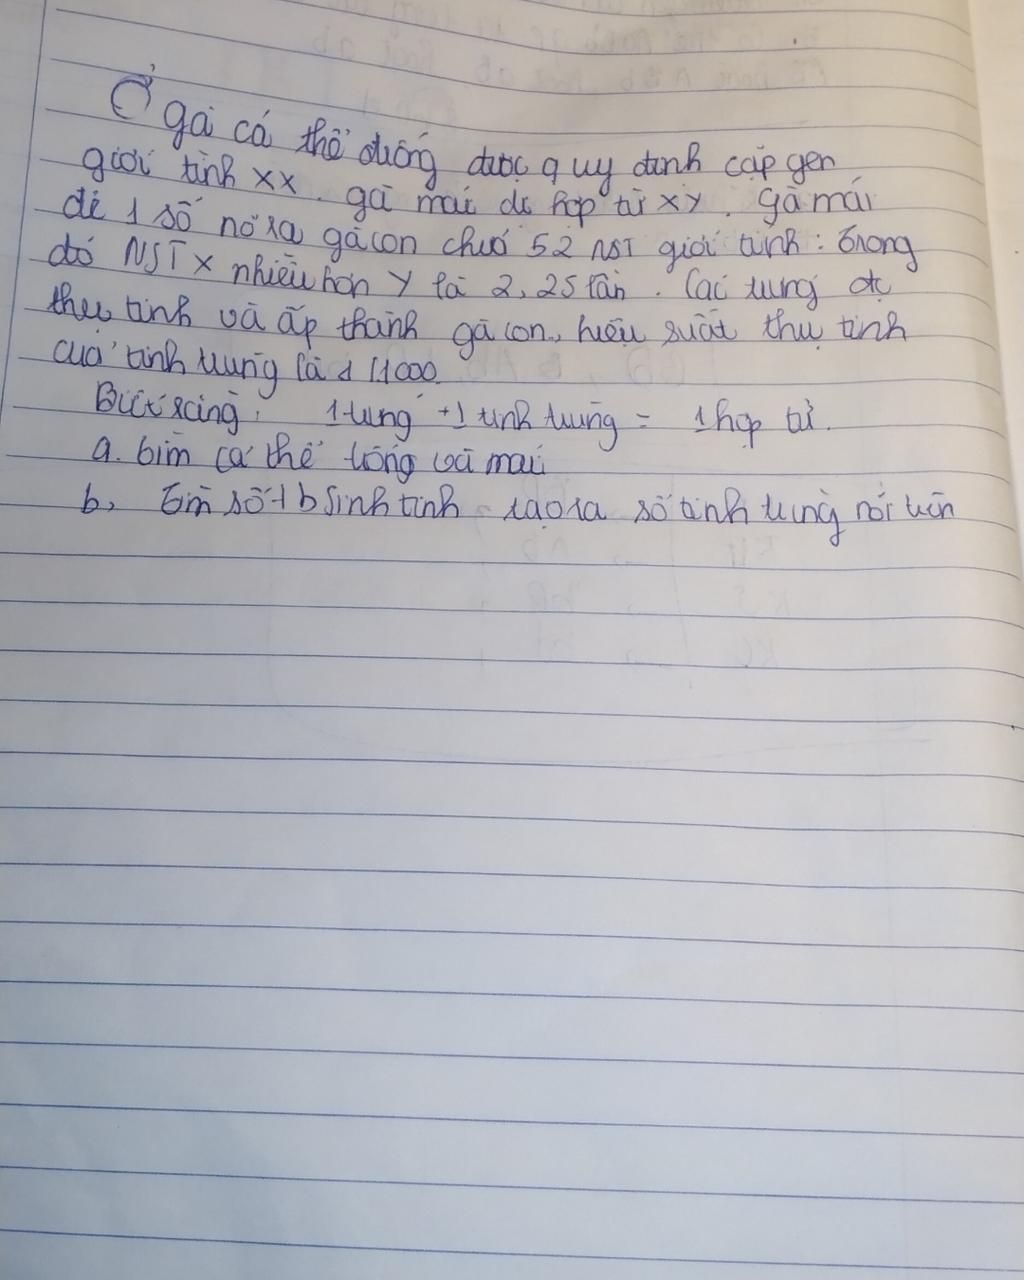 Ở gà cá thể trống được quy định cặp gen
giới tính XX. gà mái dị hợp tử XY. Gà mái
đẻ 1 số nở ra gà con chứa 52 NST giới tính: trong
đó NST X nhiều hơn Y là 2,25 lần. Các trứng đc
thụ tinh và ấp thành gà con, hiệu suất thụ tinh
của tinh trùng là 1/1000.
Biết rằng: 1 trứng + 1 tinh trùng = 1 hợp tử.
a. tìm cá thể trống và mái
b, tìm số tb sinh tinh tạo ra số tinh trùng nói trên